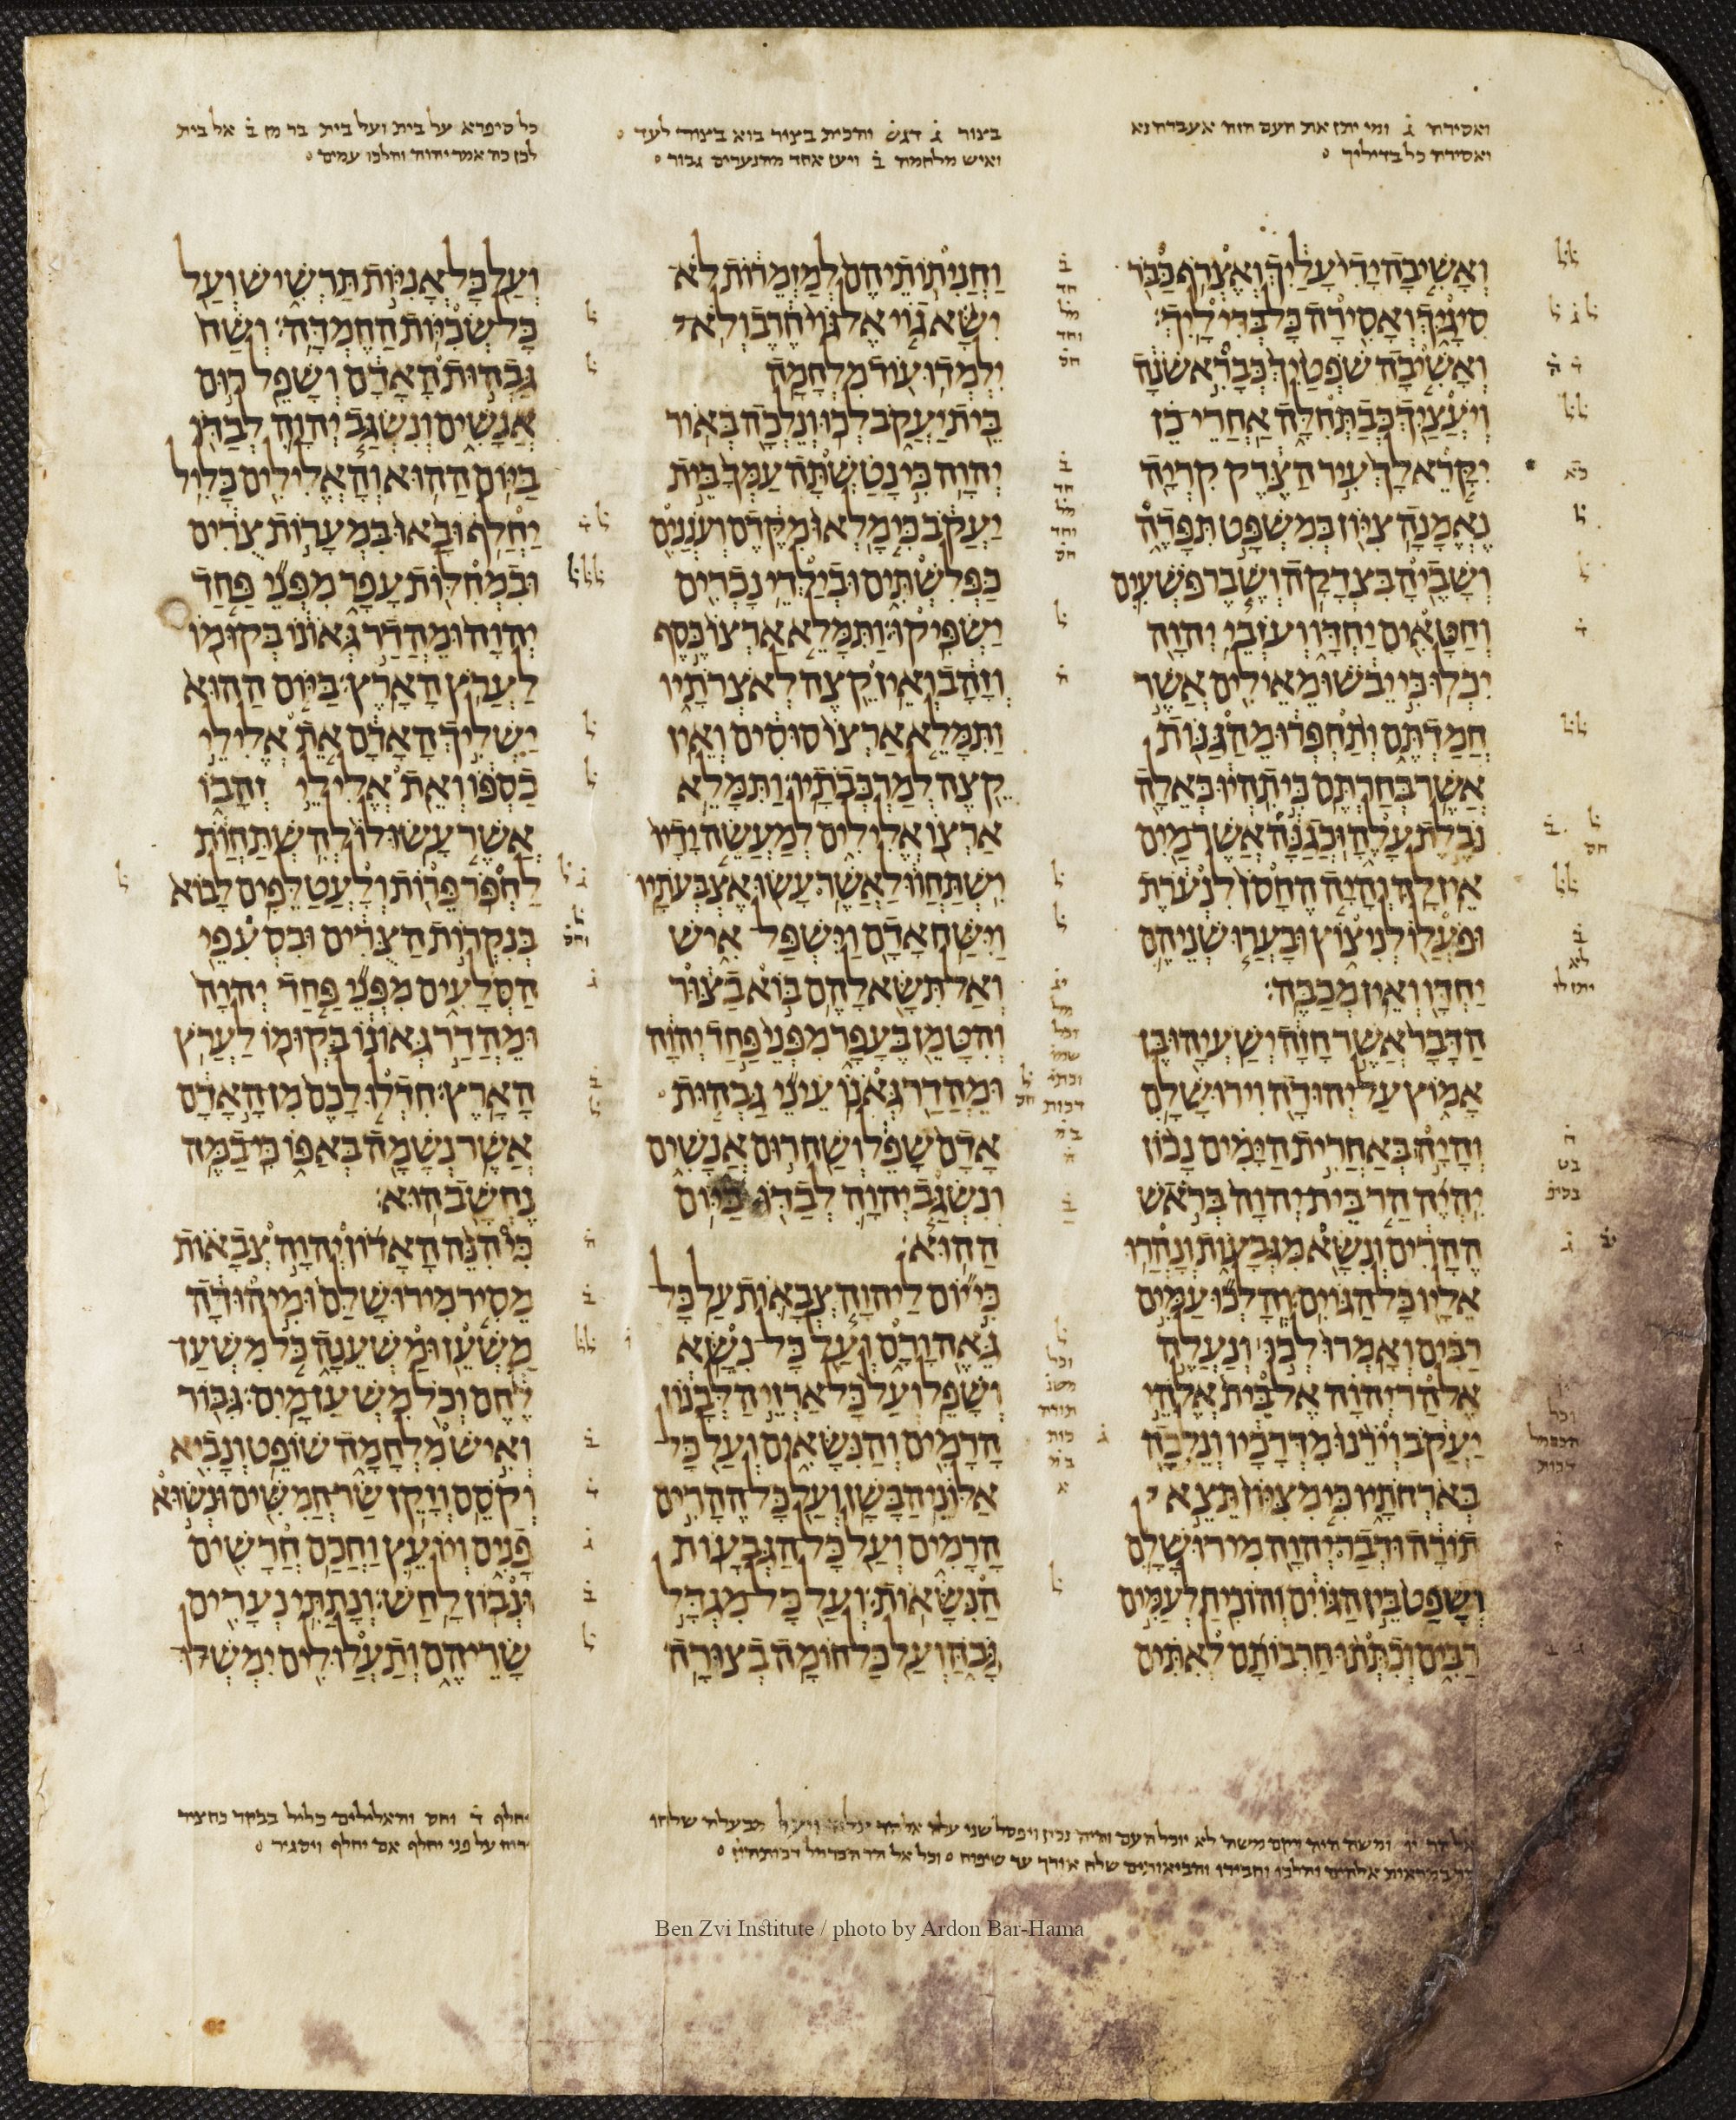 ואסירה ג ומי יתן את העם הזה אעברה נא
ואסירה כל בדיליך
בצור ג דגש והכית בצור בוא בצור לעד
ואיש מלחמה ב ויען אחד מהנערים גבור
כל סיפרא על בית ועל בית בר מן ב אל בית
לכן כה אמר יהוה והלכו עמים
ואשיבה ידי עליך ואצרף כבר
סיגיך ואסירה כל בדיליך׃
ואשיבה שפטיך כבראשנה
ויעציך כבתחלה אחרי כן
יקרא לך עיר הצדק קריה
נאמנה ציון במשפט תפדה
ושביה בצדקה ושבר פשעים
וחטאים יחדו ועזבי יהוה
יכלו כי יבשו מאילים אשר
חמדתם ותחפרו מהגנות
אשר בחרתם כי תהיו כאלה
נבלת עלה וכגנה אשר מים
אין לה והיה החסן לנערת
ופעלו לניצוץ ובערו שניהם
יחדו ואין מכבה׃
הדבר אשר חזה ישעיהו בן
אמוץ על יהודה וירושלם
והיה באחרית הימים נכון
יהיה הר בית יהוה בראש
ההרים ונשא מגבעות ונהרו
אליו כל הגוים והלכו עמים
רבים ואמרו לכו ונעלה
אל הר יהוה אל בית אלהי
יעקב וירנו מדרכיו ונלכה
בארחתיו כי מציון תצא
תורה ודבר יהוה מירושלם
ושפט בין הגוים והוכיח לעמים
רבים וכתתו חרבותם לאתים
וחניתותיהם למזמרות לא
ישא גוי אל גוי חרב ולא
ילמדו עוד מלחמה
בית יעקב לכו ונלכה באור
יהוה כי נטשתה עמך בית
יעקב כי מלאו מקדם ועננים
כפלשתים ובילדי נכרים
ישפיקו ותמלא ארצו כסף
וזהב ואין קצה לאצרתיו
ותמלא ארצו סוסים ואין
קצה למרכבתיו ותמלא
ארצו אלילים למעשה ידיו
ישתחוו לאשר עשו אצבעתיו
וישח אדם וישפל איש
ואל תשא להם בוא בצור
והטמן בעפר מפני פחד יהוה
ומהדר גאנו עיני גבהות
אדם שפל ושח רום אנשים
ונשגב יהוה לבדו ביום
ההוא׃
כי יום ליהוה צבאות על כל
גאה ורם ועל כל נשא
ושפל ועל כל ארזי הלבנון
הרמים והנשאים ועל כל
אלוני הבשן ועל כל ההרים
הרמים ועל כל הגבעות
הנשאות ועל כל מגדל
גבה ועל כל חומה בצורה
ועל כל אניות תרשיש ועל
כל שכיות החמדה׃ ושח
גבהות האדם ושפל רום
אנשים ונשגב יהוה לבדו
ביום ההוא והאלילים כליל
יחלף ובאו במערות צרים
ובמחלות עפר מפני פחד
יהוה ומהדר גאונו בקומו
לערץ הארץ׃ ביום ההוא
ישליך האדם את אלילי
כספו ואת אלילי זהבו
אשר עשו לו להשתחות
לחפר פרות ולעטלפים לבוא
בנקרות הצרים ובסעפי
הסלעים מפני פחד יהוה
ומהדר גאונו בקומו לערץ
הארץ׃ חדלו לכם מן האדם
אשר נשמה באפו כי במה
נחשב הוא׃
כי הנה האדון יהוה צבאות
מסיר מירושלם ומיהודה
משען ומשענה כל משען
לחם וכל משען מים׃ גבור
ואיש מלחמה שופט ונביא
וקסם וזקן שר חמשים ונשוא
פנים ויועץ וחכם חרשים
ונבון לחש׃ ונתתי נערים
שריהם ותעלולים ימשלו
יחלף ד וחס והאלילים כליל בבקר כחציר
רוח על פני יחלף אם יחלף ויסגיר
Ben Zvi Institute / photo by Ardon Bar-Hama